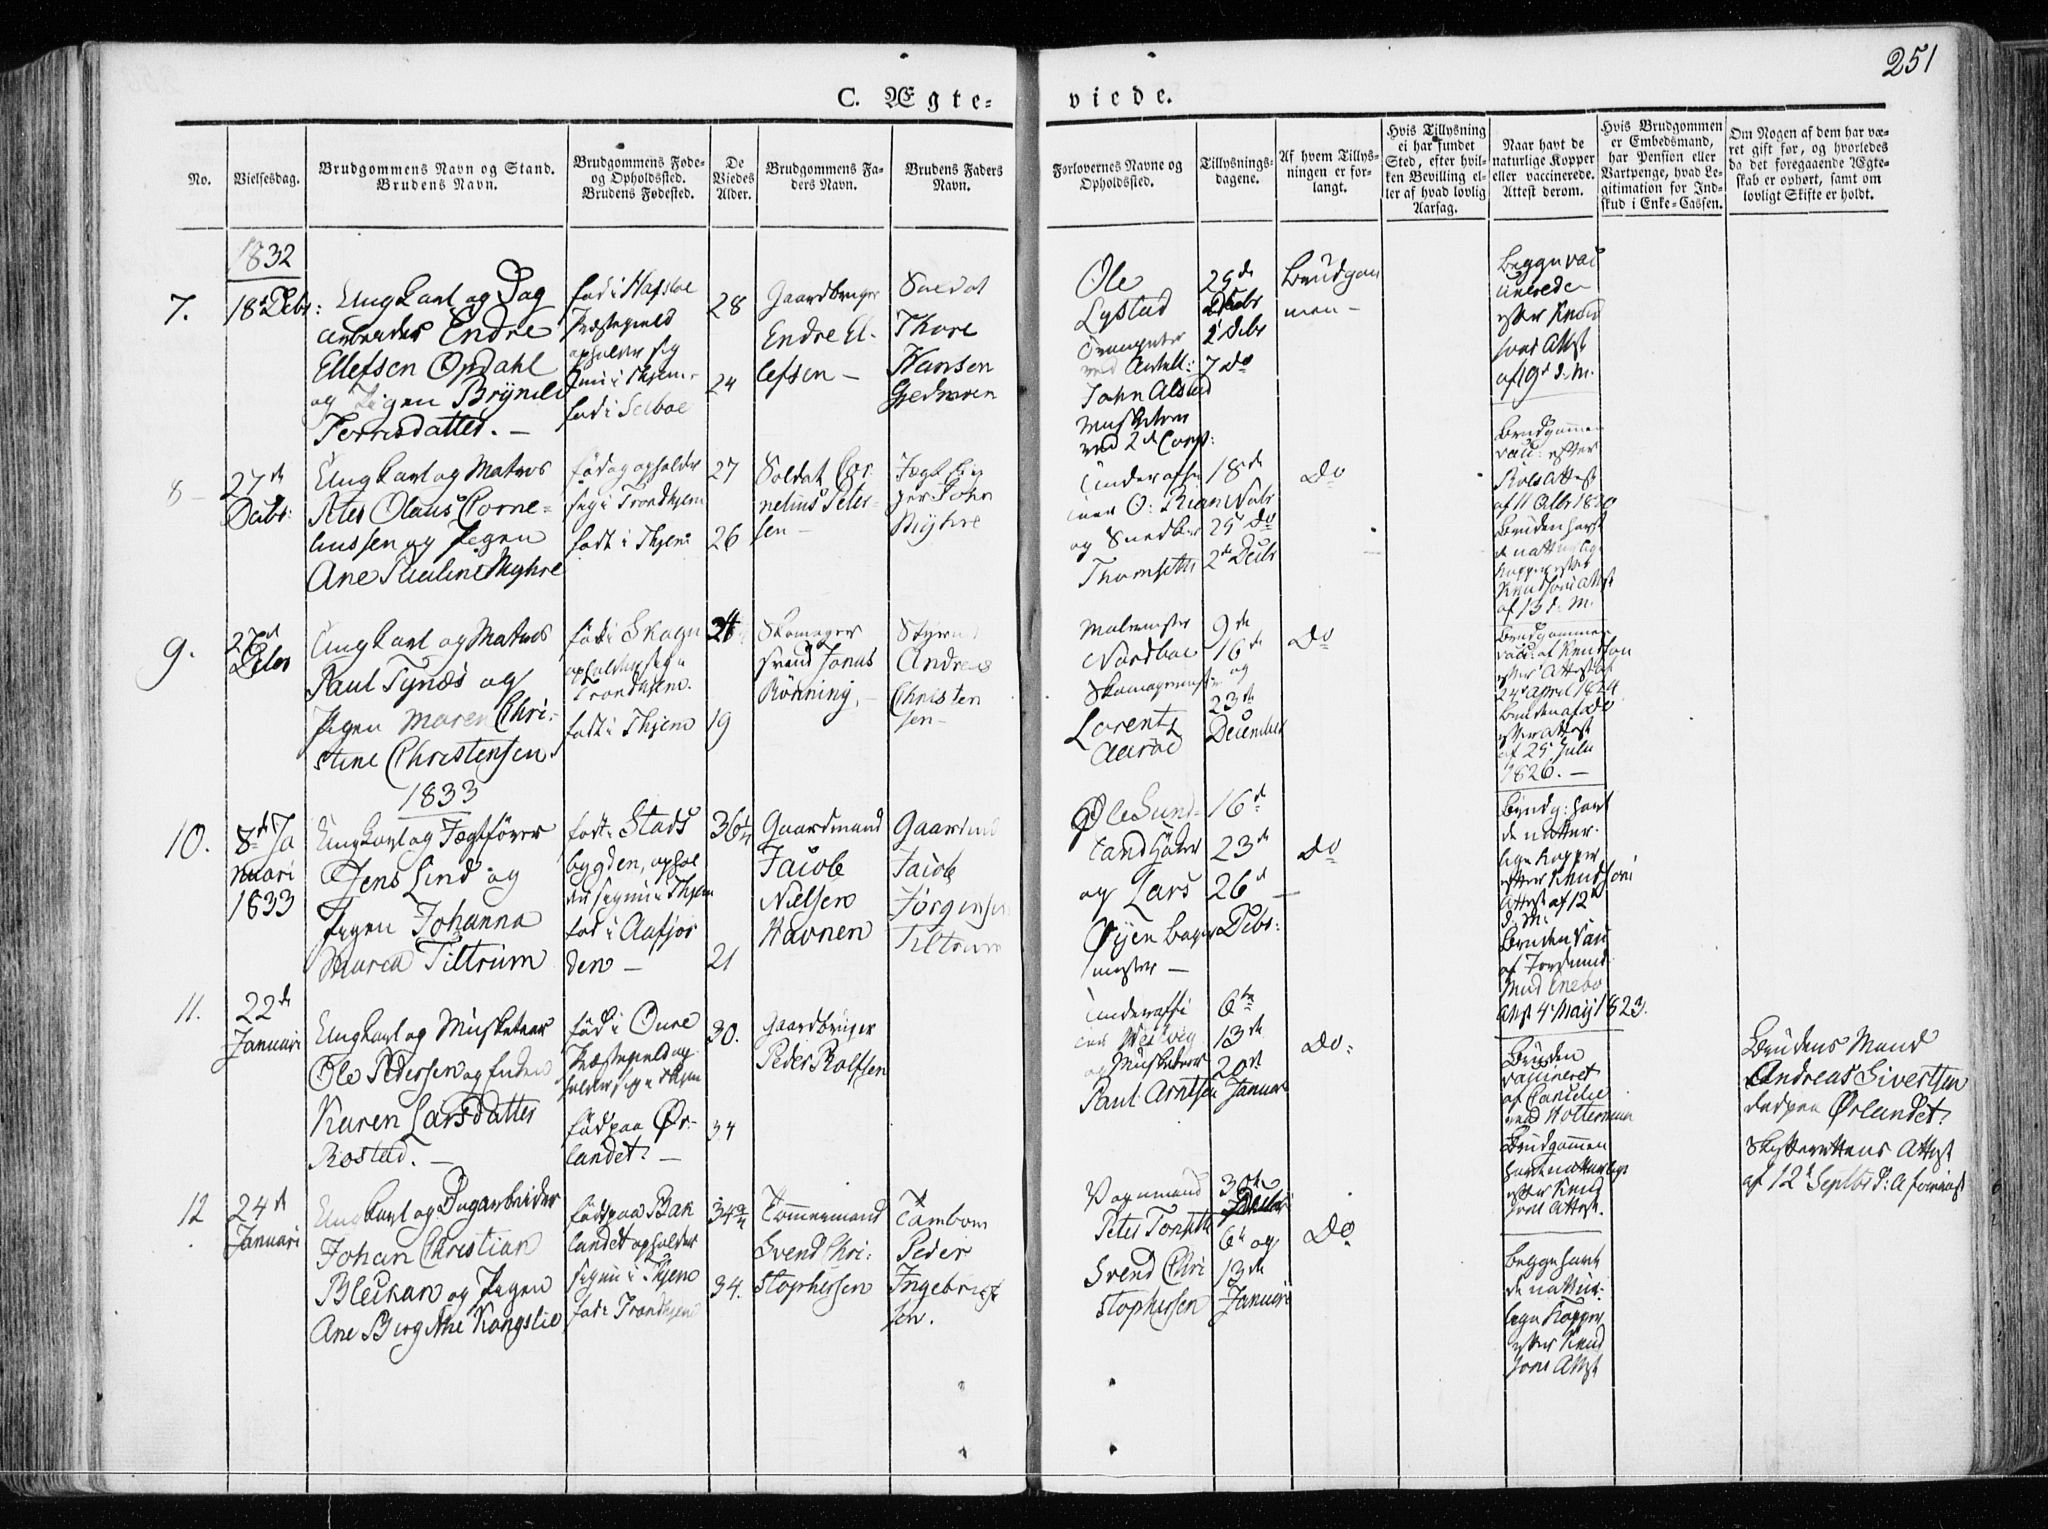 251
C. Ægte-
viede.
No.
Vielsesdag.
Brudgommens Navn og Stand.
Brudens Navn.
Brudgommens Føde-
og Opholdssted.
Brudens Fødested.
De
Viedes
Alder.
Brudgommens Fa-
ders Navn.
Brudens Faders
Navn.
Forlovernes Navne og
Opholdssted.
Tillysnings-
dagene.
Af hvem Tillys-
ningen er for-
langt.
Hvis Tillysning
ei har fundet
Sted, efter hvil-
ken Bevilling el-
ler af hvad lovlig
Aarsag.
Naar havt de
naturlige Kopper
eller vaccinerede.
Attest derom.
Hvis Brudgommen
er Embedsmand,
har Pension eller
Vartpenge, hvad Le-
gitimation for Ind-
skud i Enke-Cassen.
Om Nogen af dem har væ-
ret gift før, og hvorledes
da det foregaaende Ægte-
skab er ophørt, samt om
lovligt Skifte er holdt.
1832
7.
18d Debr:
Ungkarl og Dag
arbeider Endre
Ellefsen Opdahl
og Pigen
Torrisdatter. —
fød i Hafsloe
Præstegield
opholder sig
fød i Selboe
28
24
Gaardbruger
Endre El-
lefsen —
Soldat
Thore
Hansen
Ole
Lystad
ved Artill:
John Alstad
Musketeer
ved 2d Corps:
25de
2 Debr
7 do
Brudgom
men —
Begge vac
cinerede
efter Knud
sons Attst
af 19d d. M.
8 —
27de
Debr:
Ungkarl og Matros
Ates Olaus Corne-
liussen og Pigen
Ane Pauline Myhre
fød og opholder
sig i Trondhjem
født i Thjem
27
26
Soldat Cor
nelius Peter-
sen —
John
Myhre
Underoffi
cier O: Rian
og Snedker
Thomseth
18de
Nobr
25 do
2de Decbr
Do
Brudgommen
vac: efter
Attest
af 11 Octbr 1820
Bruden havt
de naturlige
Kopper efter
Knudsons Attst
af 13 d. M.
9.
27d
Debr
Ungkarl og Matros
Paul Tynæs og
Pigen Maren Chri-
stine Christensen
født i Skogn
opholder sig i
Trondhjem.
født i Thjem
24
19
Skomager
Svend Jonas
Rönning. —
Styrmd
Andreas
Christen
sen —
Malermster
Nordboe
og
Skomagermster
Lorents
Aaröe
9de
16de
23de
December
Do
Brudgommen
vacc: af Knudson
efter Attest af
24d April 1824
Bruden af do
efter Attest
af 25 Julii
1826. —
1833
10.
8de Ja
nuari
1833
Ungkarl og Jægtfører
Jens Lind og
Pigen Johanna
Marea Tiltrum
født i Stads
bygden, ophol
der sig nu i Thjem
fød i Aafjor
den —
36¼
21
Gaardmand
Jacob
Nielsen
Havnen
Gaardmd
Jacob
Jørgensen
Tiltrum
Ole Sund-
land Höker
og Lars
Øyen bager
mester —
16de
23de
26d —
Debr:
Do
Brudg: havt
de natter-
lige Kopper
efter Knudsons
Attst af 12d
d. M.
Bruden vac
af Jordemod
Attst 4 Maij 1823.
11.
22de
Januari
Ungkarl og Musketeer
Ole Pedersen og Enken
Karen Larsdatter
Rostad. —
fød i Oure
Præstegield op
holder sig i Thjem
fød paa Ør-
landet. —
30.
34
Gaardbruger
Peder Rolfsen
Underoffi
cier
og Musketeer
Paul Arntsen
6te
13de
20de
Januar
Do.
Bruden
vaccineret
Brudgommen
havt naturlige
efter Knud
sons Attst.
Brudens Mand
Andreas Sivertsen
død paa Ørlandet.
Skifterettens Attest
af 12d Septbr
12
24de
Januari
Ungkarl og Dagarbeider
Johan Christian
Bleckan og Pigen
Ane Birgithe Kongslie
fød paa Bak
landet opholder
sig nu i Thjem
fød i Trondhjem
34
34.
Tömmermand
Svend Chri-
stophersen
Tambour
Peder
Ingebrigt
sen.
Vognmand
Peter
Svend Chri
stophersen
30te
Decbr
6te og
13de
Januari
Do
Begge havt
de natur-
lige Kopper
efter Knud
sons Attst